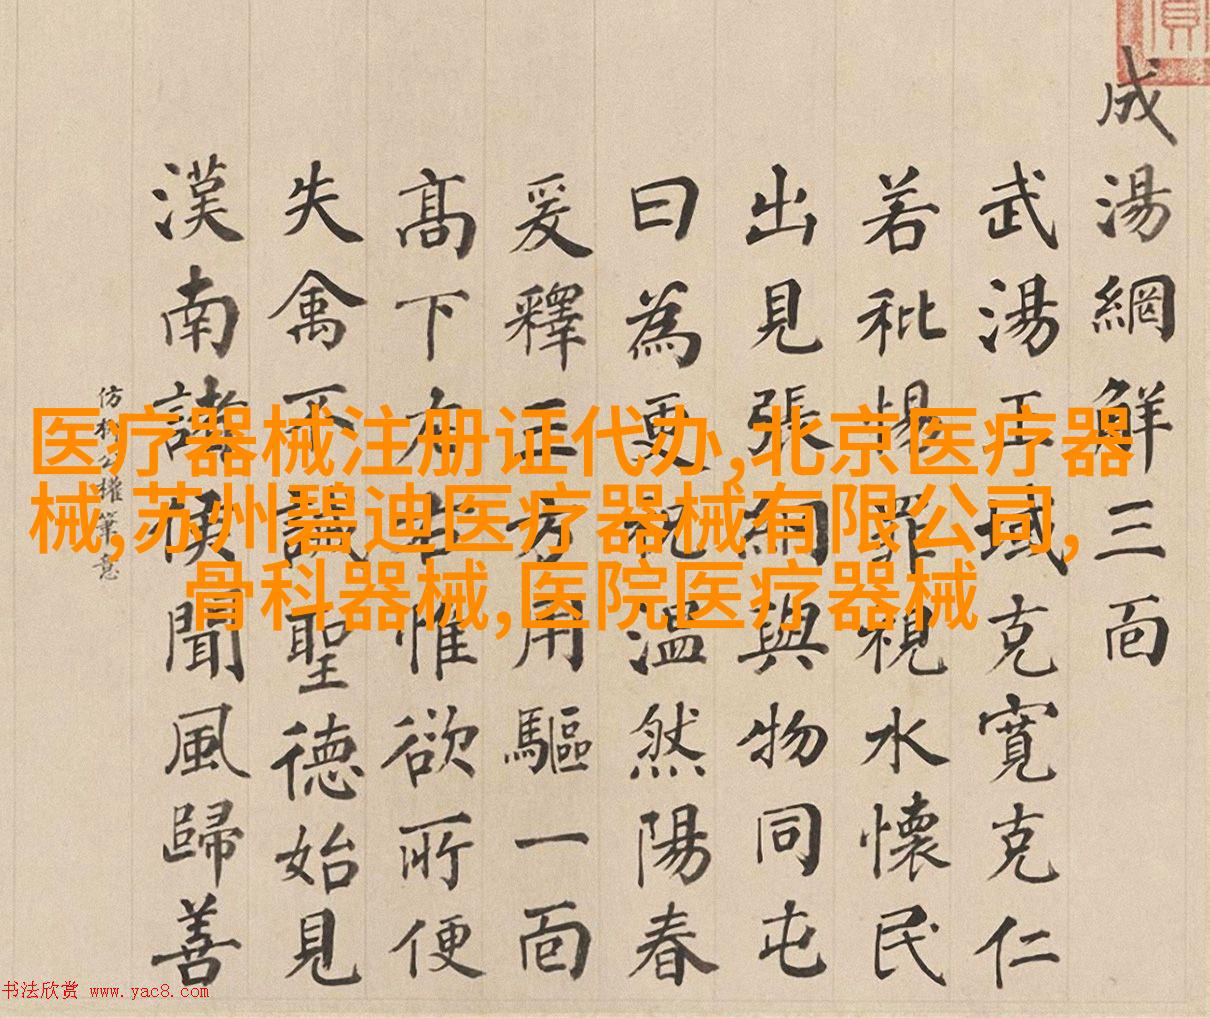 成湯網鮮三面
武湯王域克寬克仁
若秕惕罪視水懷民
出見張網與物同屯
曰為更祝溫然陽春
爰釋正方用驅一面
高下左生惟欲所便
失禽不誡聖德始見
漢南諸侯聞風歸善
仿 公權筆意
医疗器械注册证代办,北京医疗器
械,苏州碧迪医疗器械有限公司,
骨科器械,医院医疗器械
书法欣赏 www.yac8.com